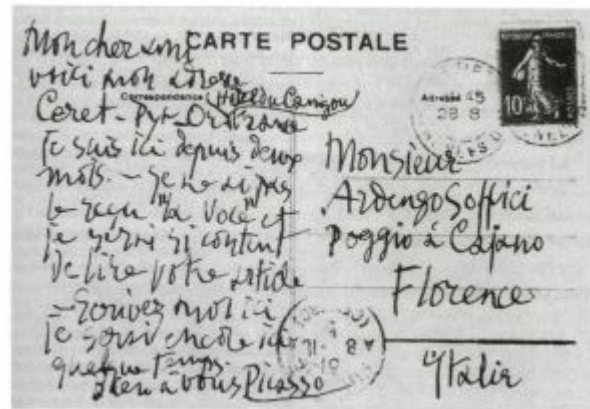 CARTE POSTALE
Mon cher ami
voici mon adresse
Correspondence
Hotel du Canigou
Ceret - Pyr - Orientales
Je suis ici depuis deux
mois. - Je ne ai pas
reçu "la Voce" et
je serai si content
de lire votre article
- Ecrivez moi ici
je serai encore ici
quelque temps
bien à vous Picasso
Adresse
28 8
10
Monsieur
Ardengo Soffici
Poggio à Cajano
Florence
Italie